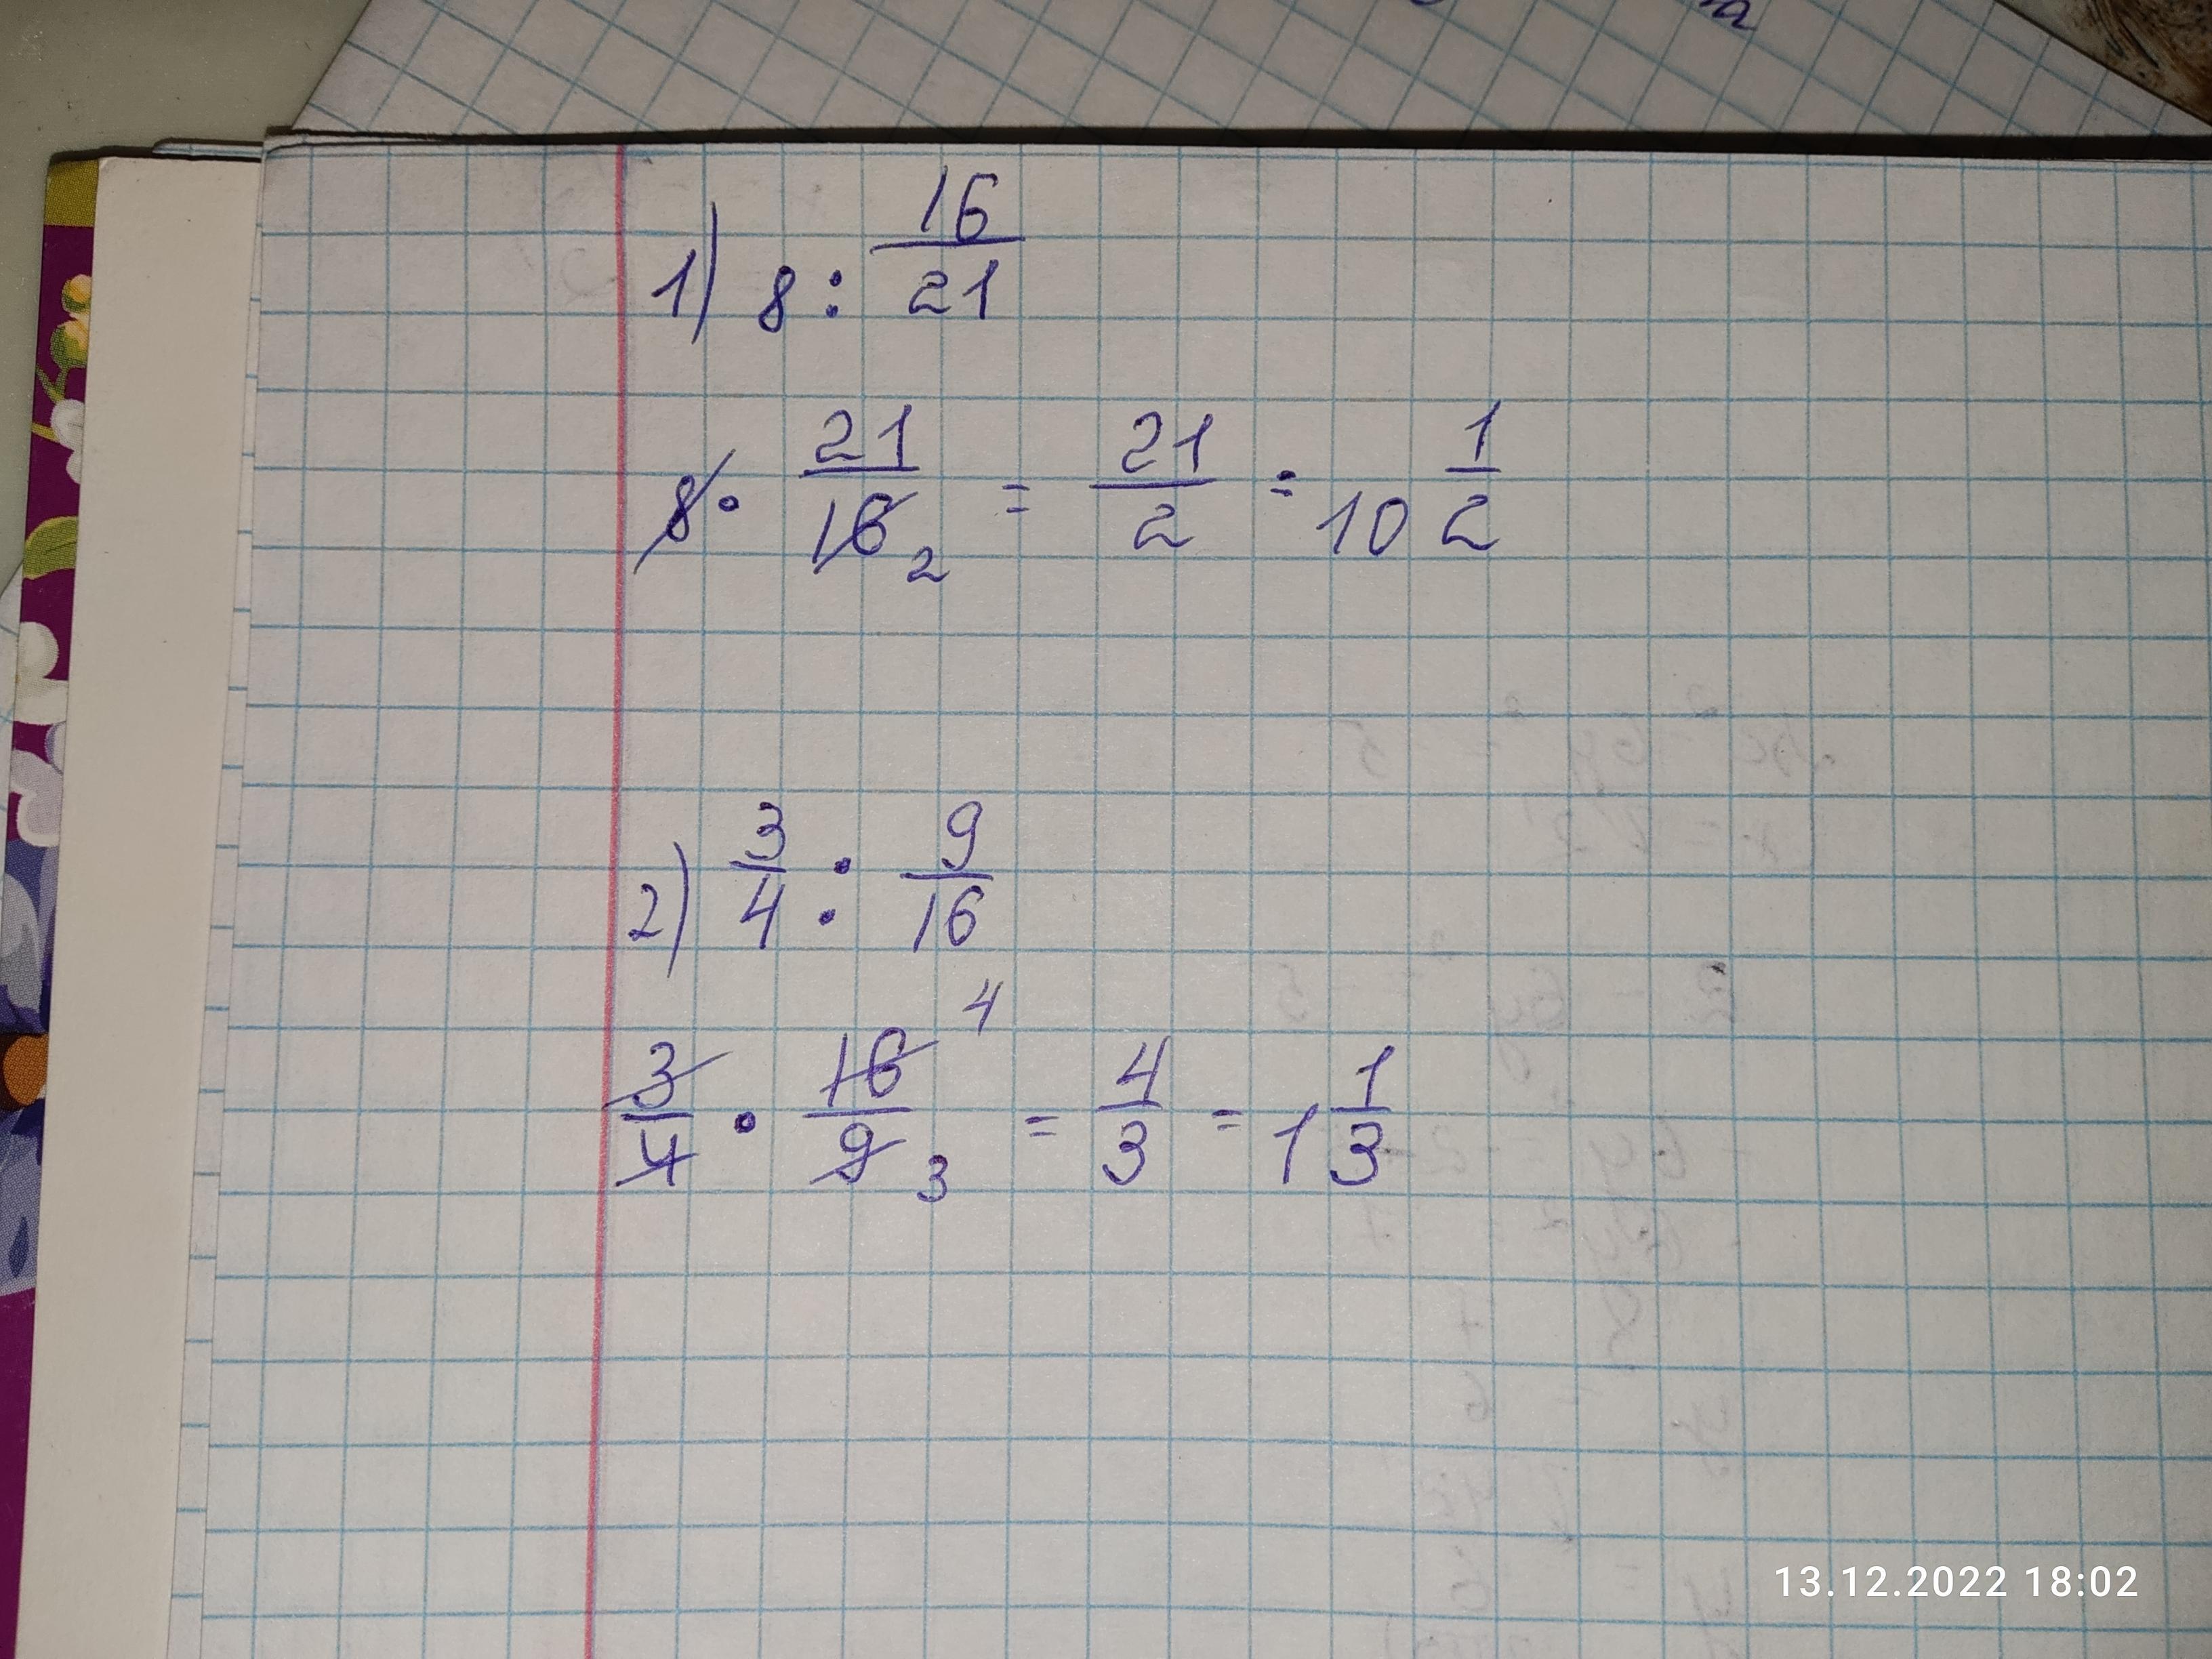 1) 8 : 16/21
8 · 21/16 2 = 21/2 = 10 1/2
2) 3/4 : 9/16
3/4 · 16 4/9 3 = 4/3 = 1 1/3
13.12.2022 18:02